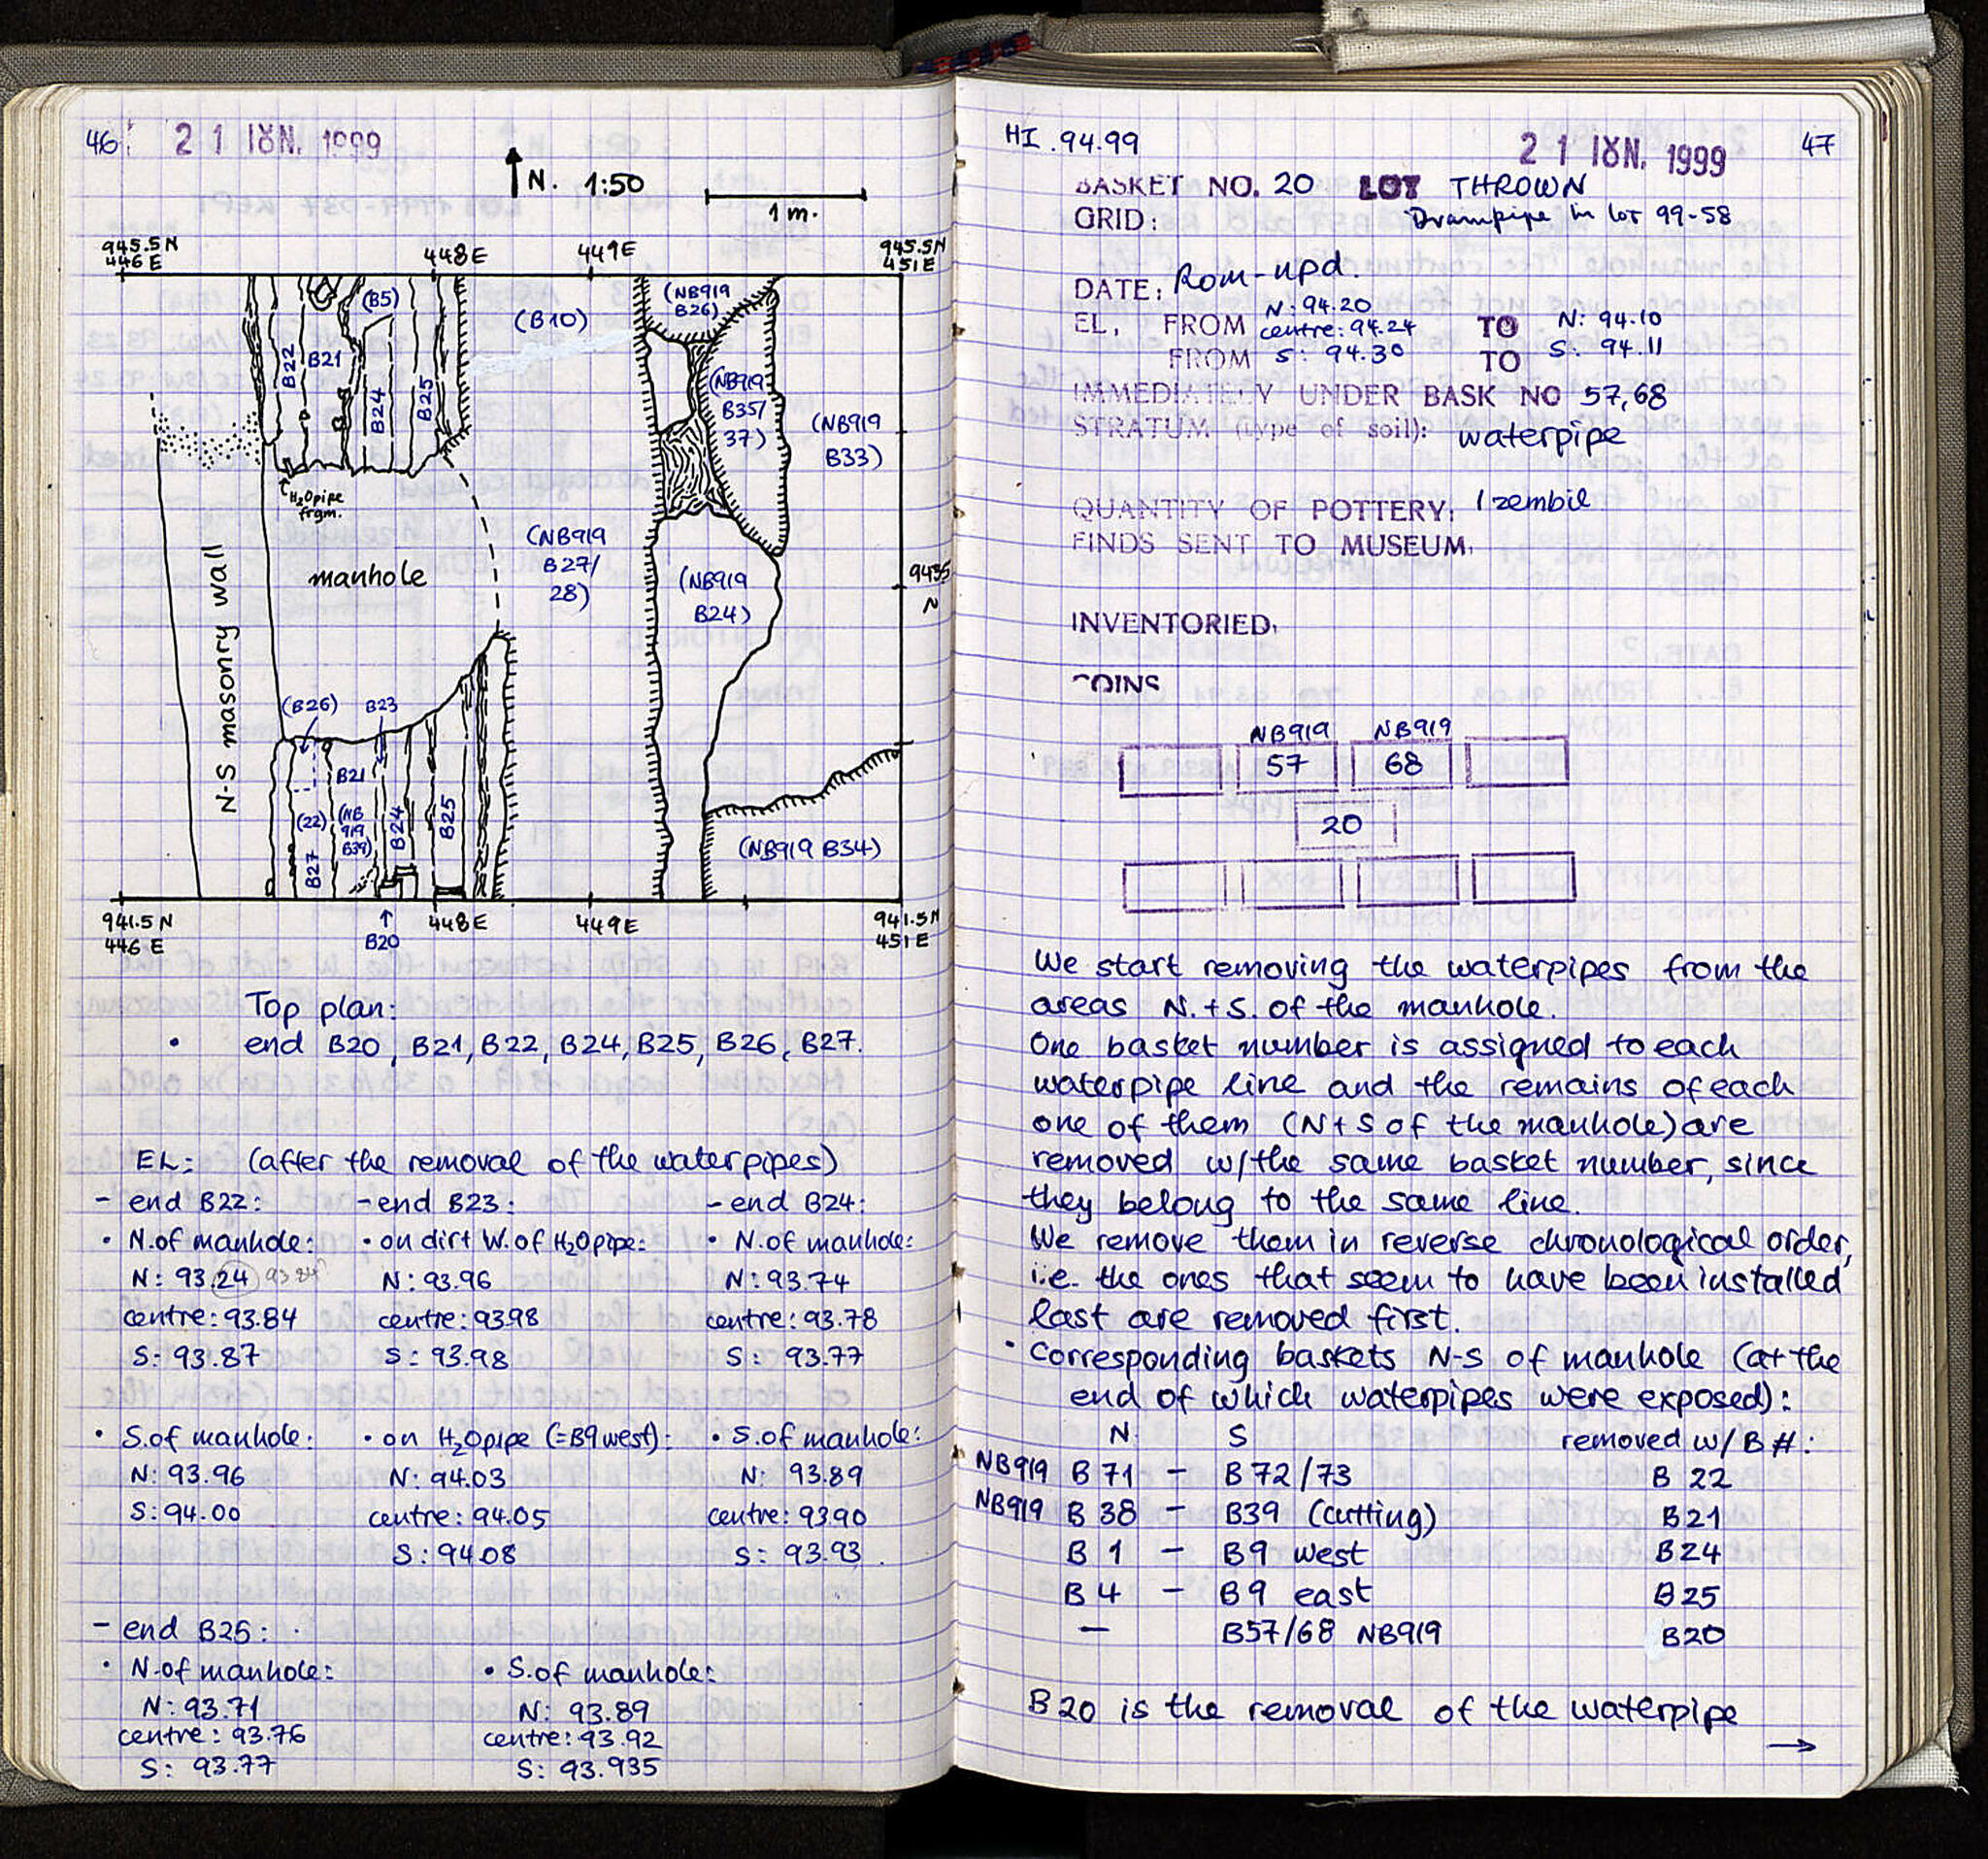 46
21 ΙΟΥΝ. 1999
N. 1:50
1 m.
945.5 N
446 E
448 E
449 E
945.5 N
451 E
(B5)
(B10)
(NB919
B26)
B22
B21
B24
B25
(NB919
B35/
37)
(NB919
B33)
H₂O pipe
frgm.
N-S masonry wall
manhole
(NB919
B27/
28)
(NB919
B24)
943.5
N
(B26)
B23
B21
(22)
(NB
919
B39)
B27
B24
B25
(NB919 B34)
941.5 N
446 E
B20
448 E
449 E
941.5 N
451 E
Top plan:
• end B20, B21, B22, B24, B25, B26, B27.
EL: (after the removal of the waterpipes)
- end B22: - end B23: - end B24:
• N. of manhole: • on dirt W. of H₂O pipe: • N. of manhole:
N: 93.24 93.84 N: 93.96 N: 93.74
centre: 93.84 centre: 93.98 centre: 93.78
S: 93.87 S: 93.98 S: 93.77
• S. of manhole: • on H₂O pipe (=B9 west): • S. of manhole:
N: 93.96 N: 94.03 N: 93.89
S: 94.00 centre: 94.05 centre: 93.90
S: 94.08 S: 93.93.
- end B25:
• N. of manhole: • S. of manhole:
N: 93.71 N: 93.89
centre: 93.76 centre: 93.92
S: 93.77 S: 93.935
HI. 94.99
21 ΙΟΥΝ. 1999
47
BASKET NO. 20 LOT THROWN
GRID: Drainpipe in lot 99-58
DATE: Rom-upd.
EL, FROM N: 94.20 centre: 94.24 TO N: 94.10
FROM S: 94.30 TO S: 94.11
IMMEDIATELY UNDER BASK NO 57, 68
STRATUM (type of soil): waterpipe
QUANTITY OF POTTERY: 1 zembil
FINDS SENT TO MUSEUM:
INVENTORIED:
COINS
NB919 NB919
57 68
20
We start removing the waterpipes from the
areas N. + S. of the manhole.
One basket number is assigned to each
waterpipe line and the remains of each
one of them (N + S of the manhole) are
removed w/ the same basket number, since
they belong to the same line.
We remove them in reverse chronological order,
i.e. the ones that seem to have been installed
last are removed first.
• Corresponding baskets N-S of manhole (at the
end of which waterpipes were exposed):
N S removed w/ B #:
NB919 B 71 - B 72/73 B 22
NB919 B 38 - B39 (cutting) B21
B 1 - B9 west B24
B 4 - B9 east B25
- B57/68 NB919 B20
B20 is the removal of the waterpipe
→